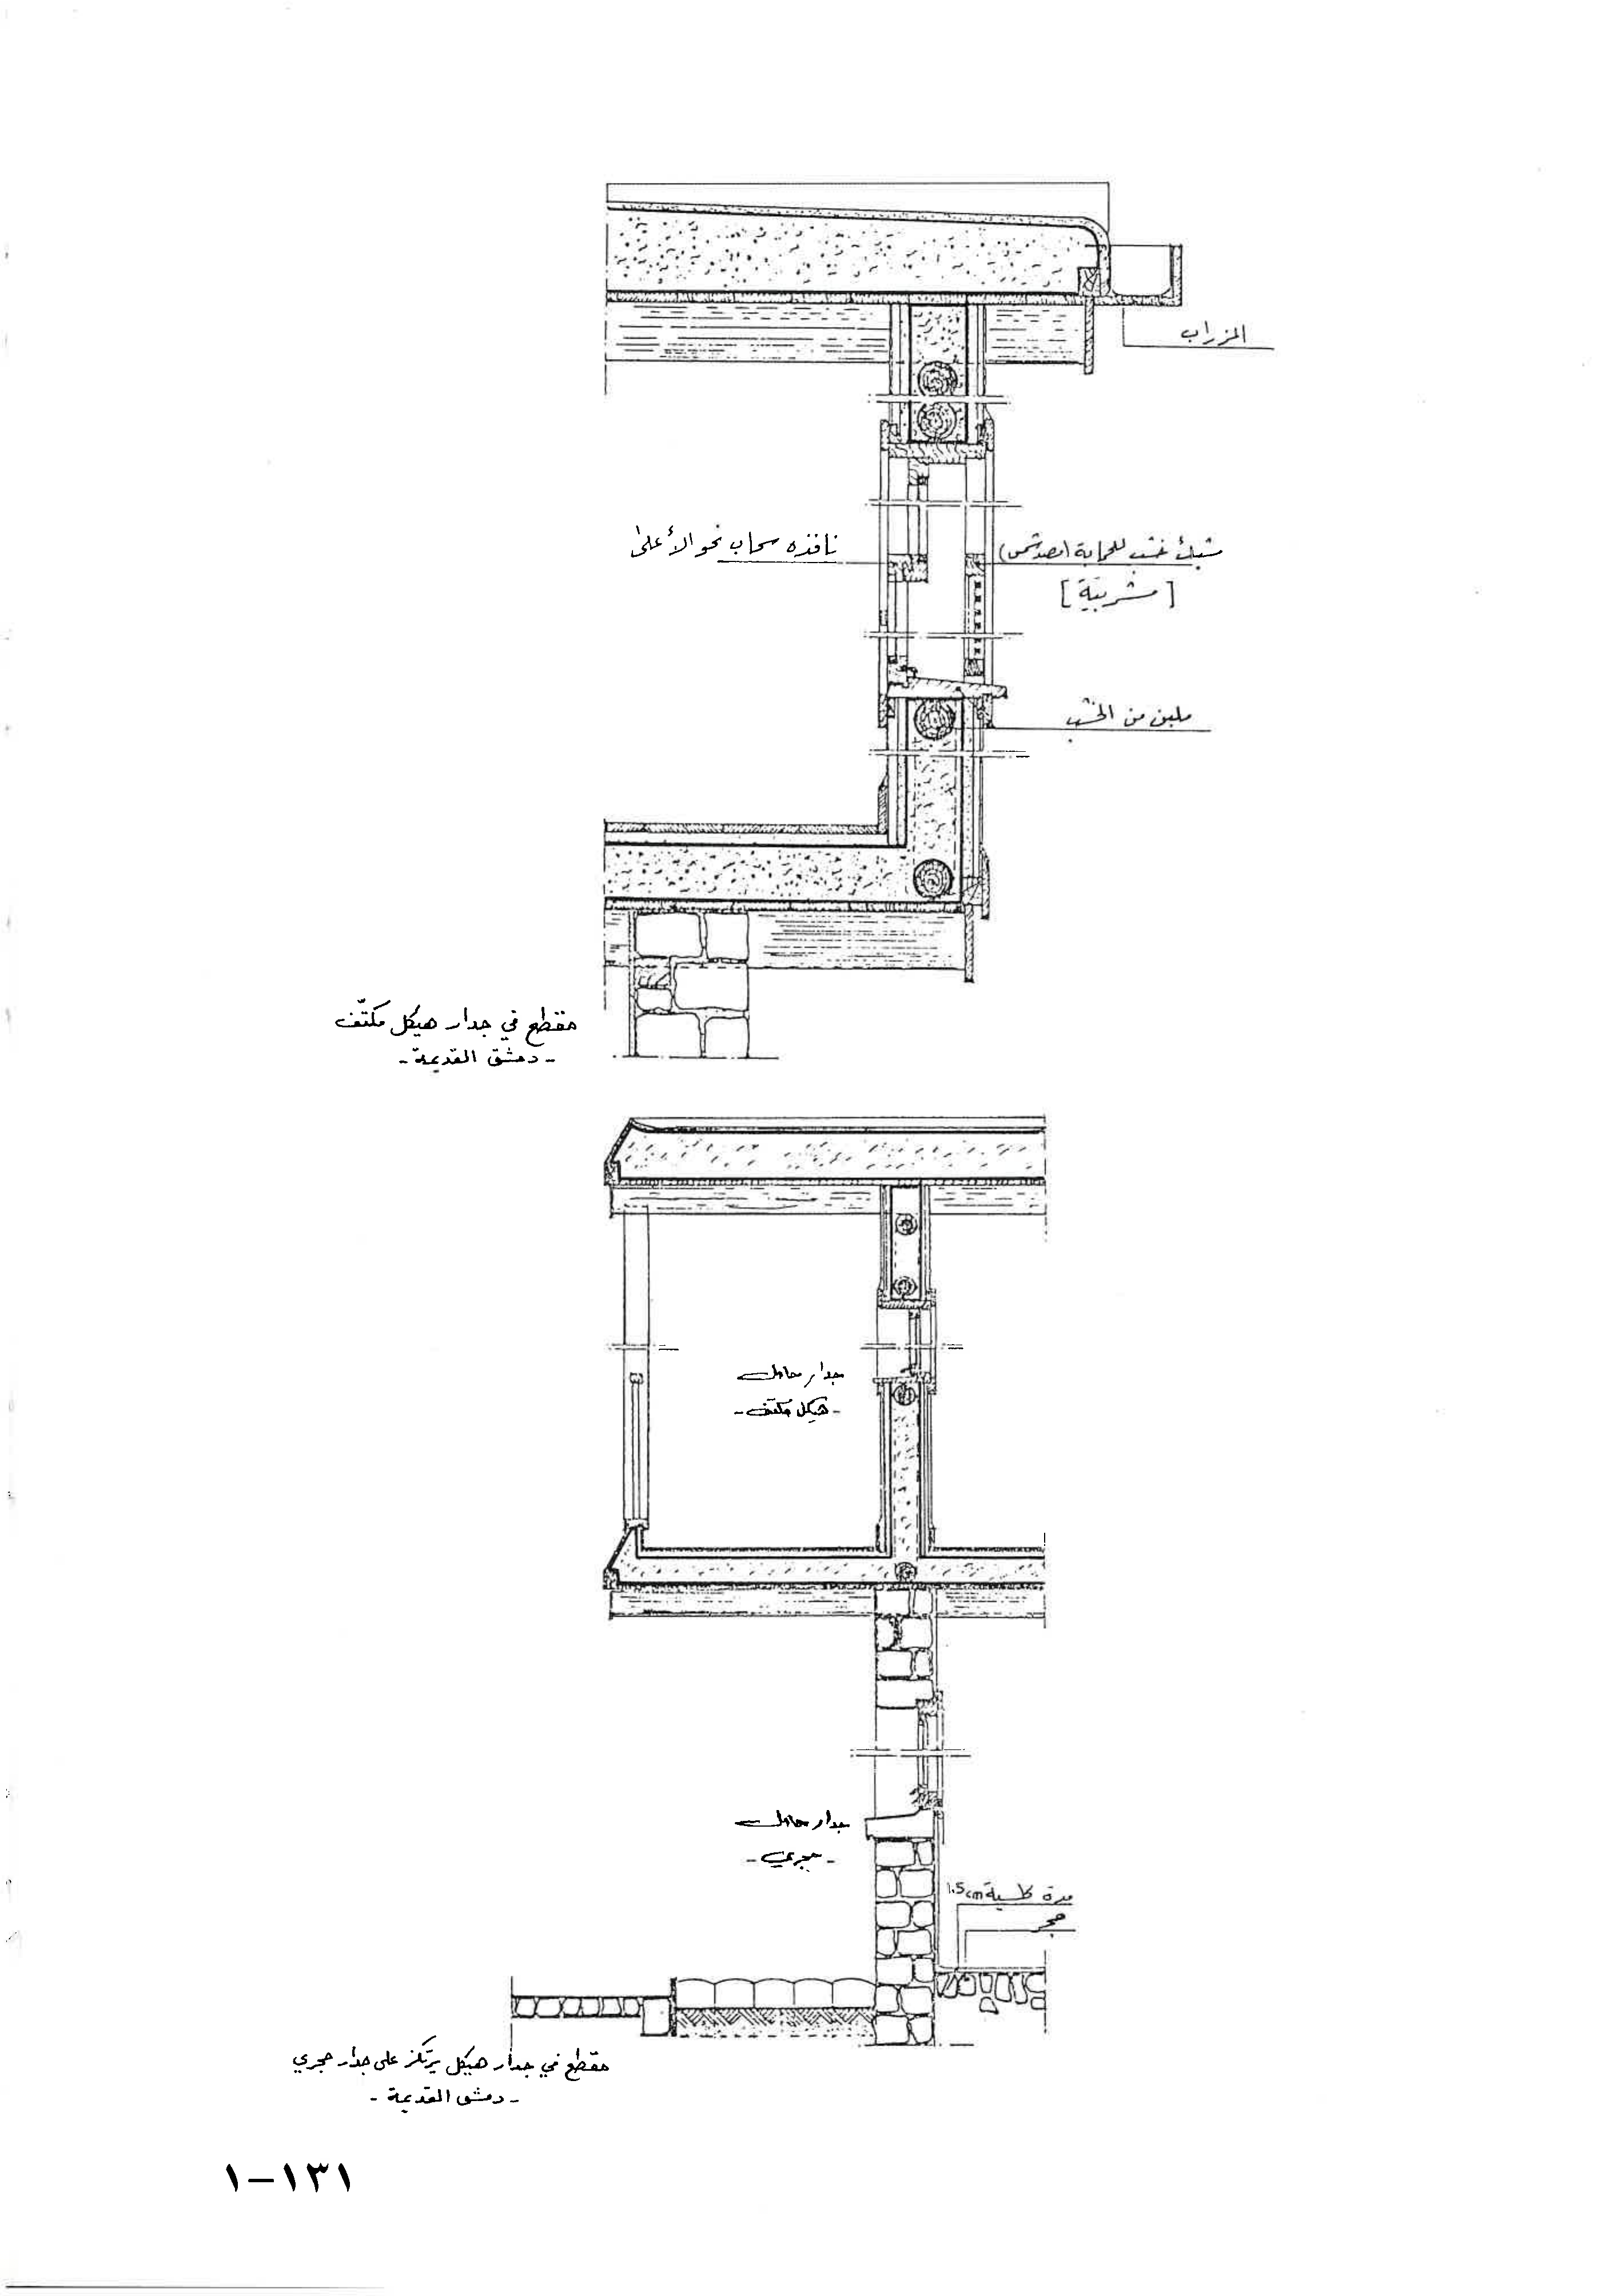 المزراب
نافذه سحاب نحو الأعلى
شبك خشب للحماية (صد شمس)
[مشربية]
ملبن من الخشب
مقطع في جدار هيكل مكتّف
- دمشق القديمة -
جدار حامل
- هيكل مكتف -
جدار حامل
- حجري -
مدة كلسية 1.5cm
حجر
مقطع في جدار هيكل يرتكز على جدار حجري
- دمشق القديمة -
١-١٣١